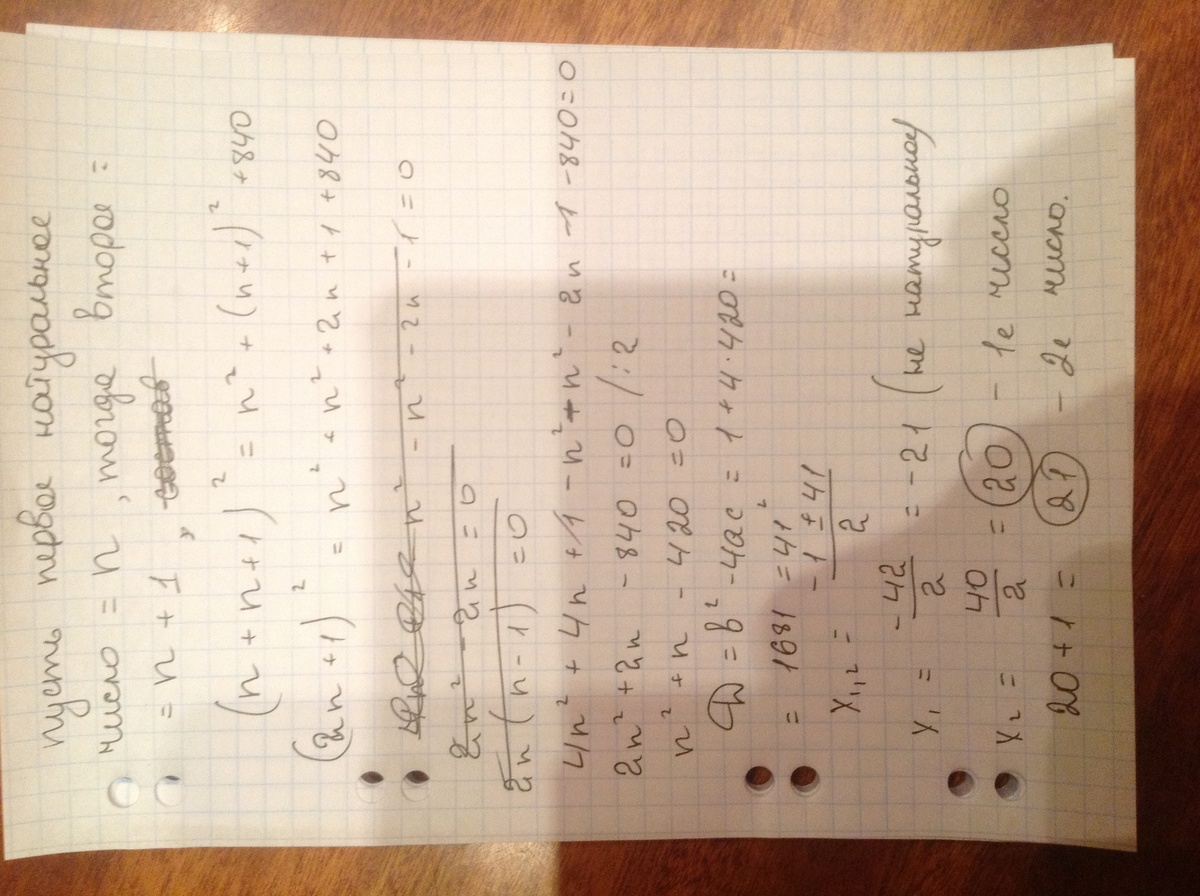 пусть первое натуральное
число = n, тогда второе =
= n + 1,
(n + n + 1)² = n² + (n+1)² + 840
(2n + 1)² = n² + n² + 2n + 1 + 840
n² - n² - 2n - 1 = 0
2n² - 2n = 0
2n (n - 1) = 0
4n² + 4n + 1 - n² - n² - 2n - 1 - 840 = 0
2n² + 2n - 840 = 0 /:2
n² + n - 420 = 0
D = b² - 4ac = 1 + 4·420 =
= 1681 = 41²
x₁,₂ = (-1 ± 41)/2
x₁ = -42/2 = -21 (не натуральное)
x₂ = 40/2 = 20 - 1е число
20 + 1 = 21 - 2е число.